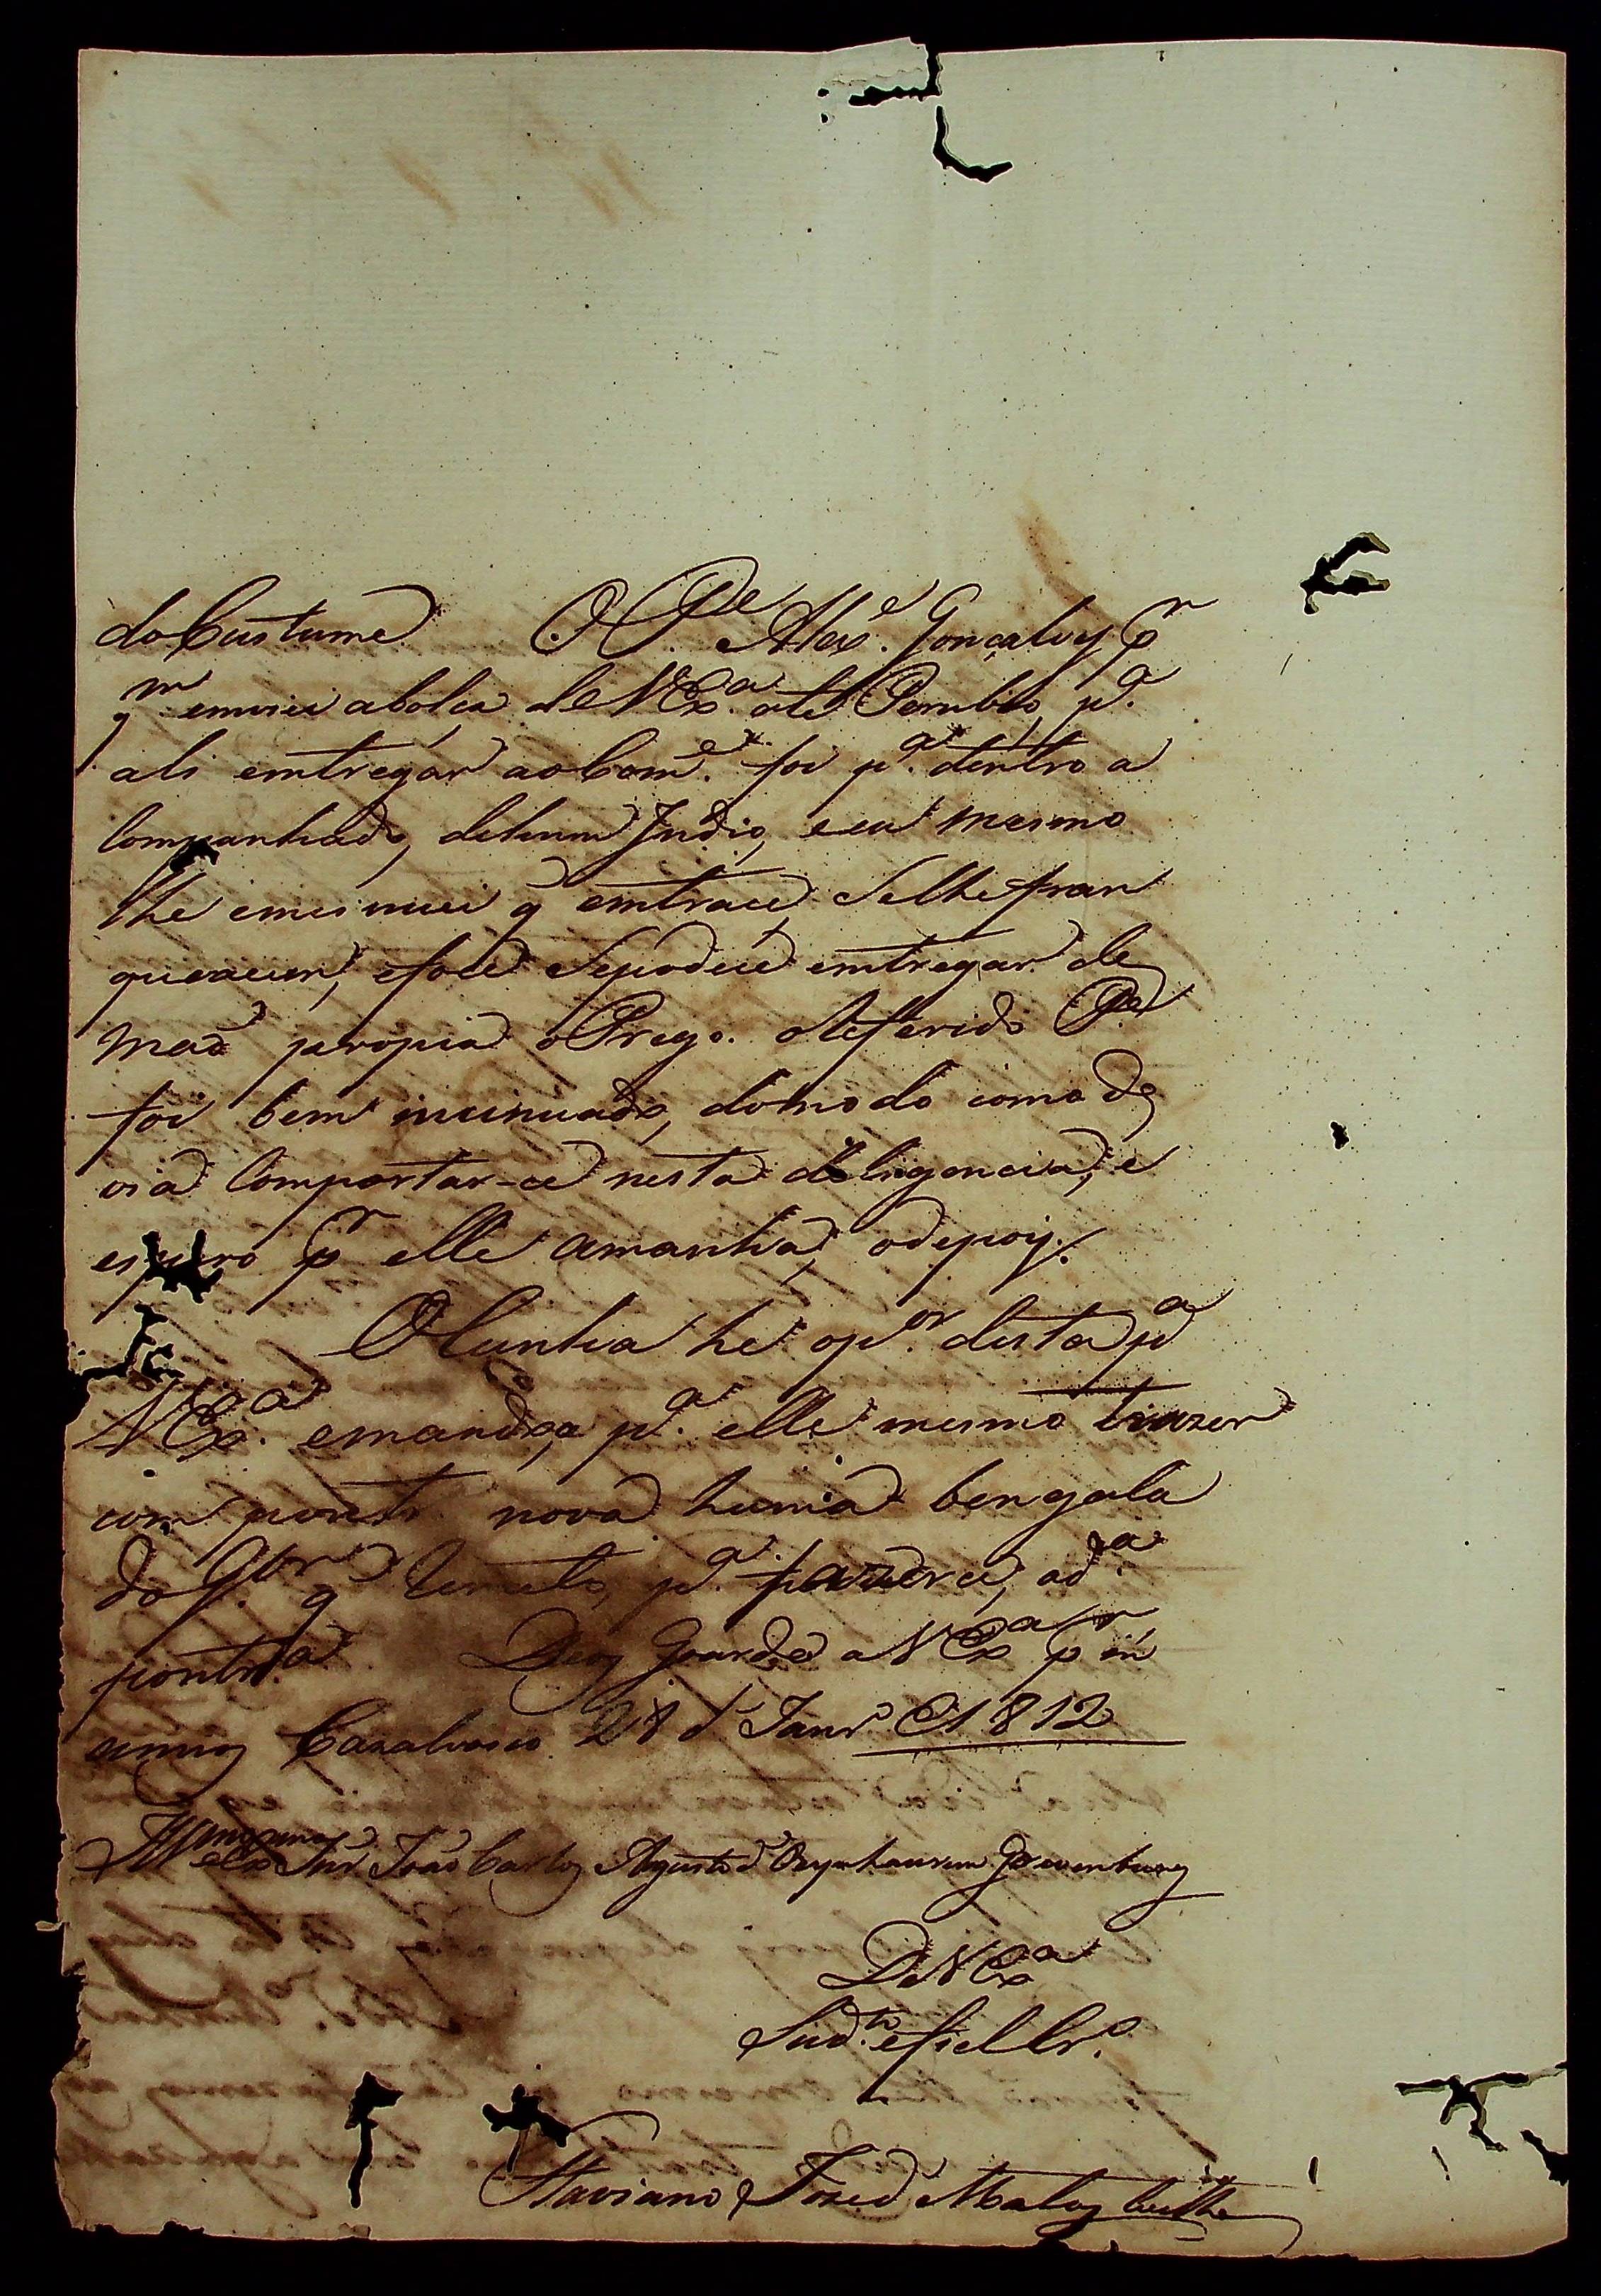 do Custume. O P.e Alex.e Gonçalves p.r
q.m enviei a bolca de V Ex.a até Perubio, p.a
ali emtregár ao Com.e foi p.a dentro a
Companhado, de hum Indio, e eu mesmo
lhe encinuei q̃ emtrace, Se lhe fran
queacem, e foce Se podece emtregar de
maõ propia o Prego. o Referido P.e
foi bem incinuado, do modo como de
via Comportar-ce nesta deligencia, e
espero p.r elle amanhã, o depois.
O Cunha he o p.or desta p.a
V Ex.a e manda, p.a elle mesmo trazer
com ponta nova huma bengala
do q̃ remeto, p.a fazerce, a d.a
ponta. Deos Guarde a V Ex.a p.r in
annos Cazalvasco 28 d' Janr.o d 1812
Ill.mo e Ex.mo Snr. João Carlos Agusto d' Oeynhausen Gravenburg
De V Ex.a
Sud.to e fiel Cr.o
Flaviano Jozé de Matos Coelho